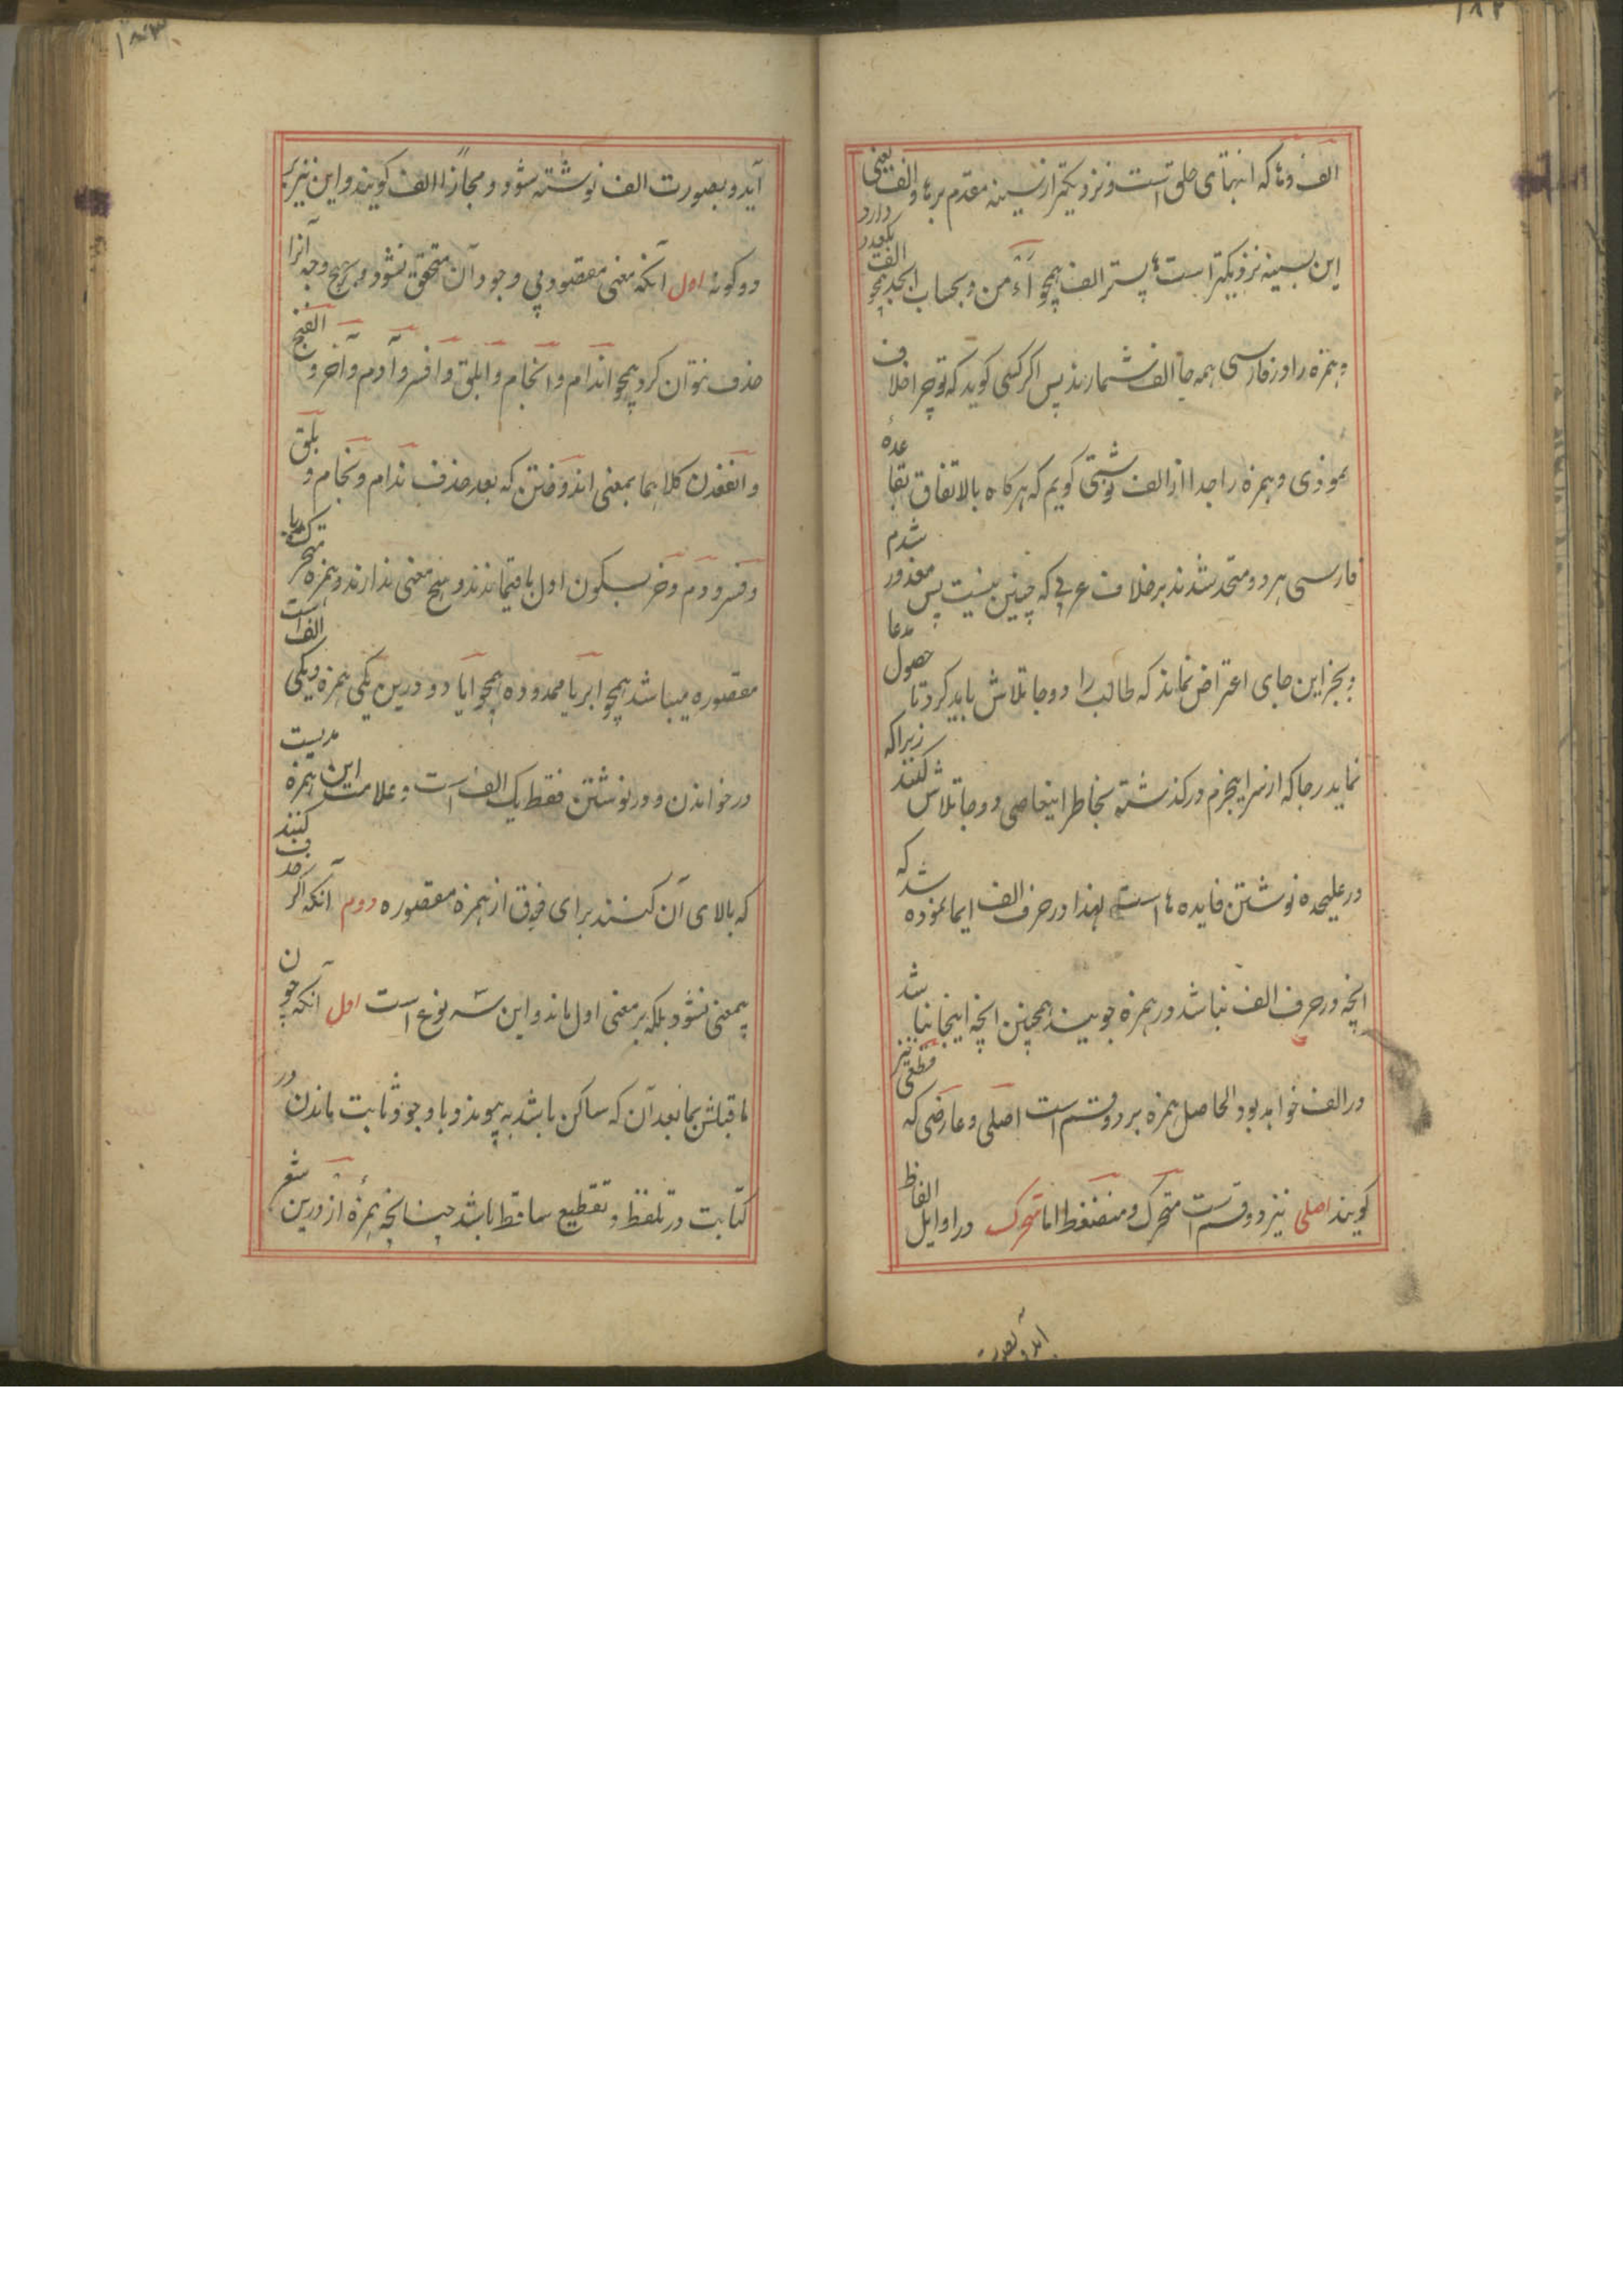 ۱۸۲
الف و ها که انتهای حلق است و نزدیکتر از سینه مقدم بر ها و الف یعنی
این بسینه نزدیکتر است ها پستر الف همچو آء من و بحساب ابجد همچو الف یکعدد دارد
و همزه را در فارسی همه جا الف شمارند پس اگر کسی گوید که تو چرا خلاف
نمودی و همزه را جدا از الف نوشتی گویم که هرگاه بالاتفاق بقاعده
فارسی هر دو متحد شدند بر خلاف عربی که چنین نیست پس معذور شدم
و بجز این جای اعتراض نماند که طالب را دو جا تلاش باید کرد تا حصول مدعا
نماید هر جا که از سر اینجرم درگذشته بخاطر اینعاصی دو جا تلاش کنند زیراکه
در علیحده نوشتن فایده ها است لهذا در حرف الف ایما نموده شد که
انچه در حرف الف نباشد در همزه جویند همچنین انچه اینجا نباشد
در الف خواهد بود الحاصل همزه بر دو قسم است اصلی و عارضی که قطعی نیز
گویند اصلی نیز دو قسم است متحرک و منضغط اما متحرک در اوایل الفاظ
اید و بصورت
۱۸۳
آید و بصورت الف نوشته شود و مجازاً الف گویند و این نیز بر
دو گونه اول آنکه معنی مقصود بی وجود آن متحقق نشود و بهیچ وجه آنرا
حذف نتوان کرد همچو اندام و انجام و ابلق و افسر و آدم و آخر و الفنج
و الفغدن کلاهما بمعنی اندوختن که بعد حذف ندام و نجام و بلق
و فسر و دم و خر بسکون اول باقیماندند و هیچ معنی ندارند و همزه متحرک یا
مقصوره میباشد همچو ابر یا ممدوده همچو ایا و درین یکی همزه و یکی الف است
در خواندن و در نوشتن فقط یک الف است و علامت این همزه مدیست
که بالای آن کنند برای فرق از همزه مقصوره دوم آنکه اگر حذف کنند
بیمعنی نشود بلکه بر معنی اول ماند و این سه نوع است اول آنکه چون
ماقبلش بمابعد آن که ساکن باشد به پیوندد و با وجود ثابت ماندن در
کتابت در تلفظ و تقطیع ساقط باشد چنانچه همزه از درین شعر